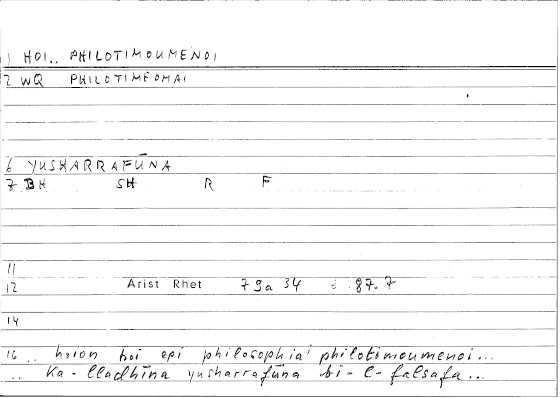 1 HOI.. PHILOTIMOUMENOI
2 WQ PHILOTIMEOMAI
6 YUSHARRAFŪNA
7 BH SH R F
11
12 Arist Rhet 79a 34 : 87.7
14
16 .. hoion hoi epi philosophiai philotimoumenoi...
.. ka-lladhīna yusharrafūna bi-l-falsafa...